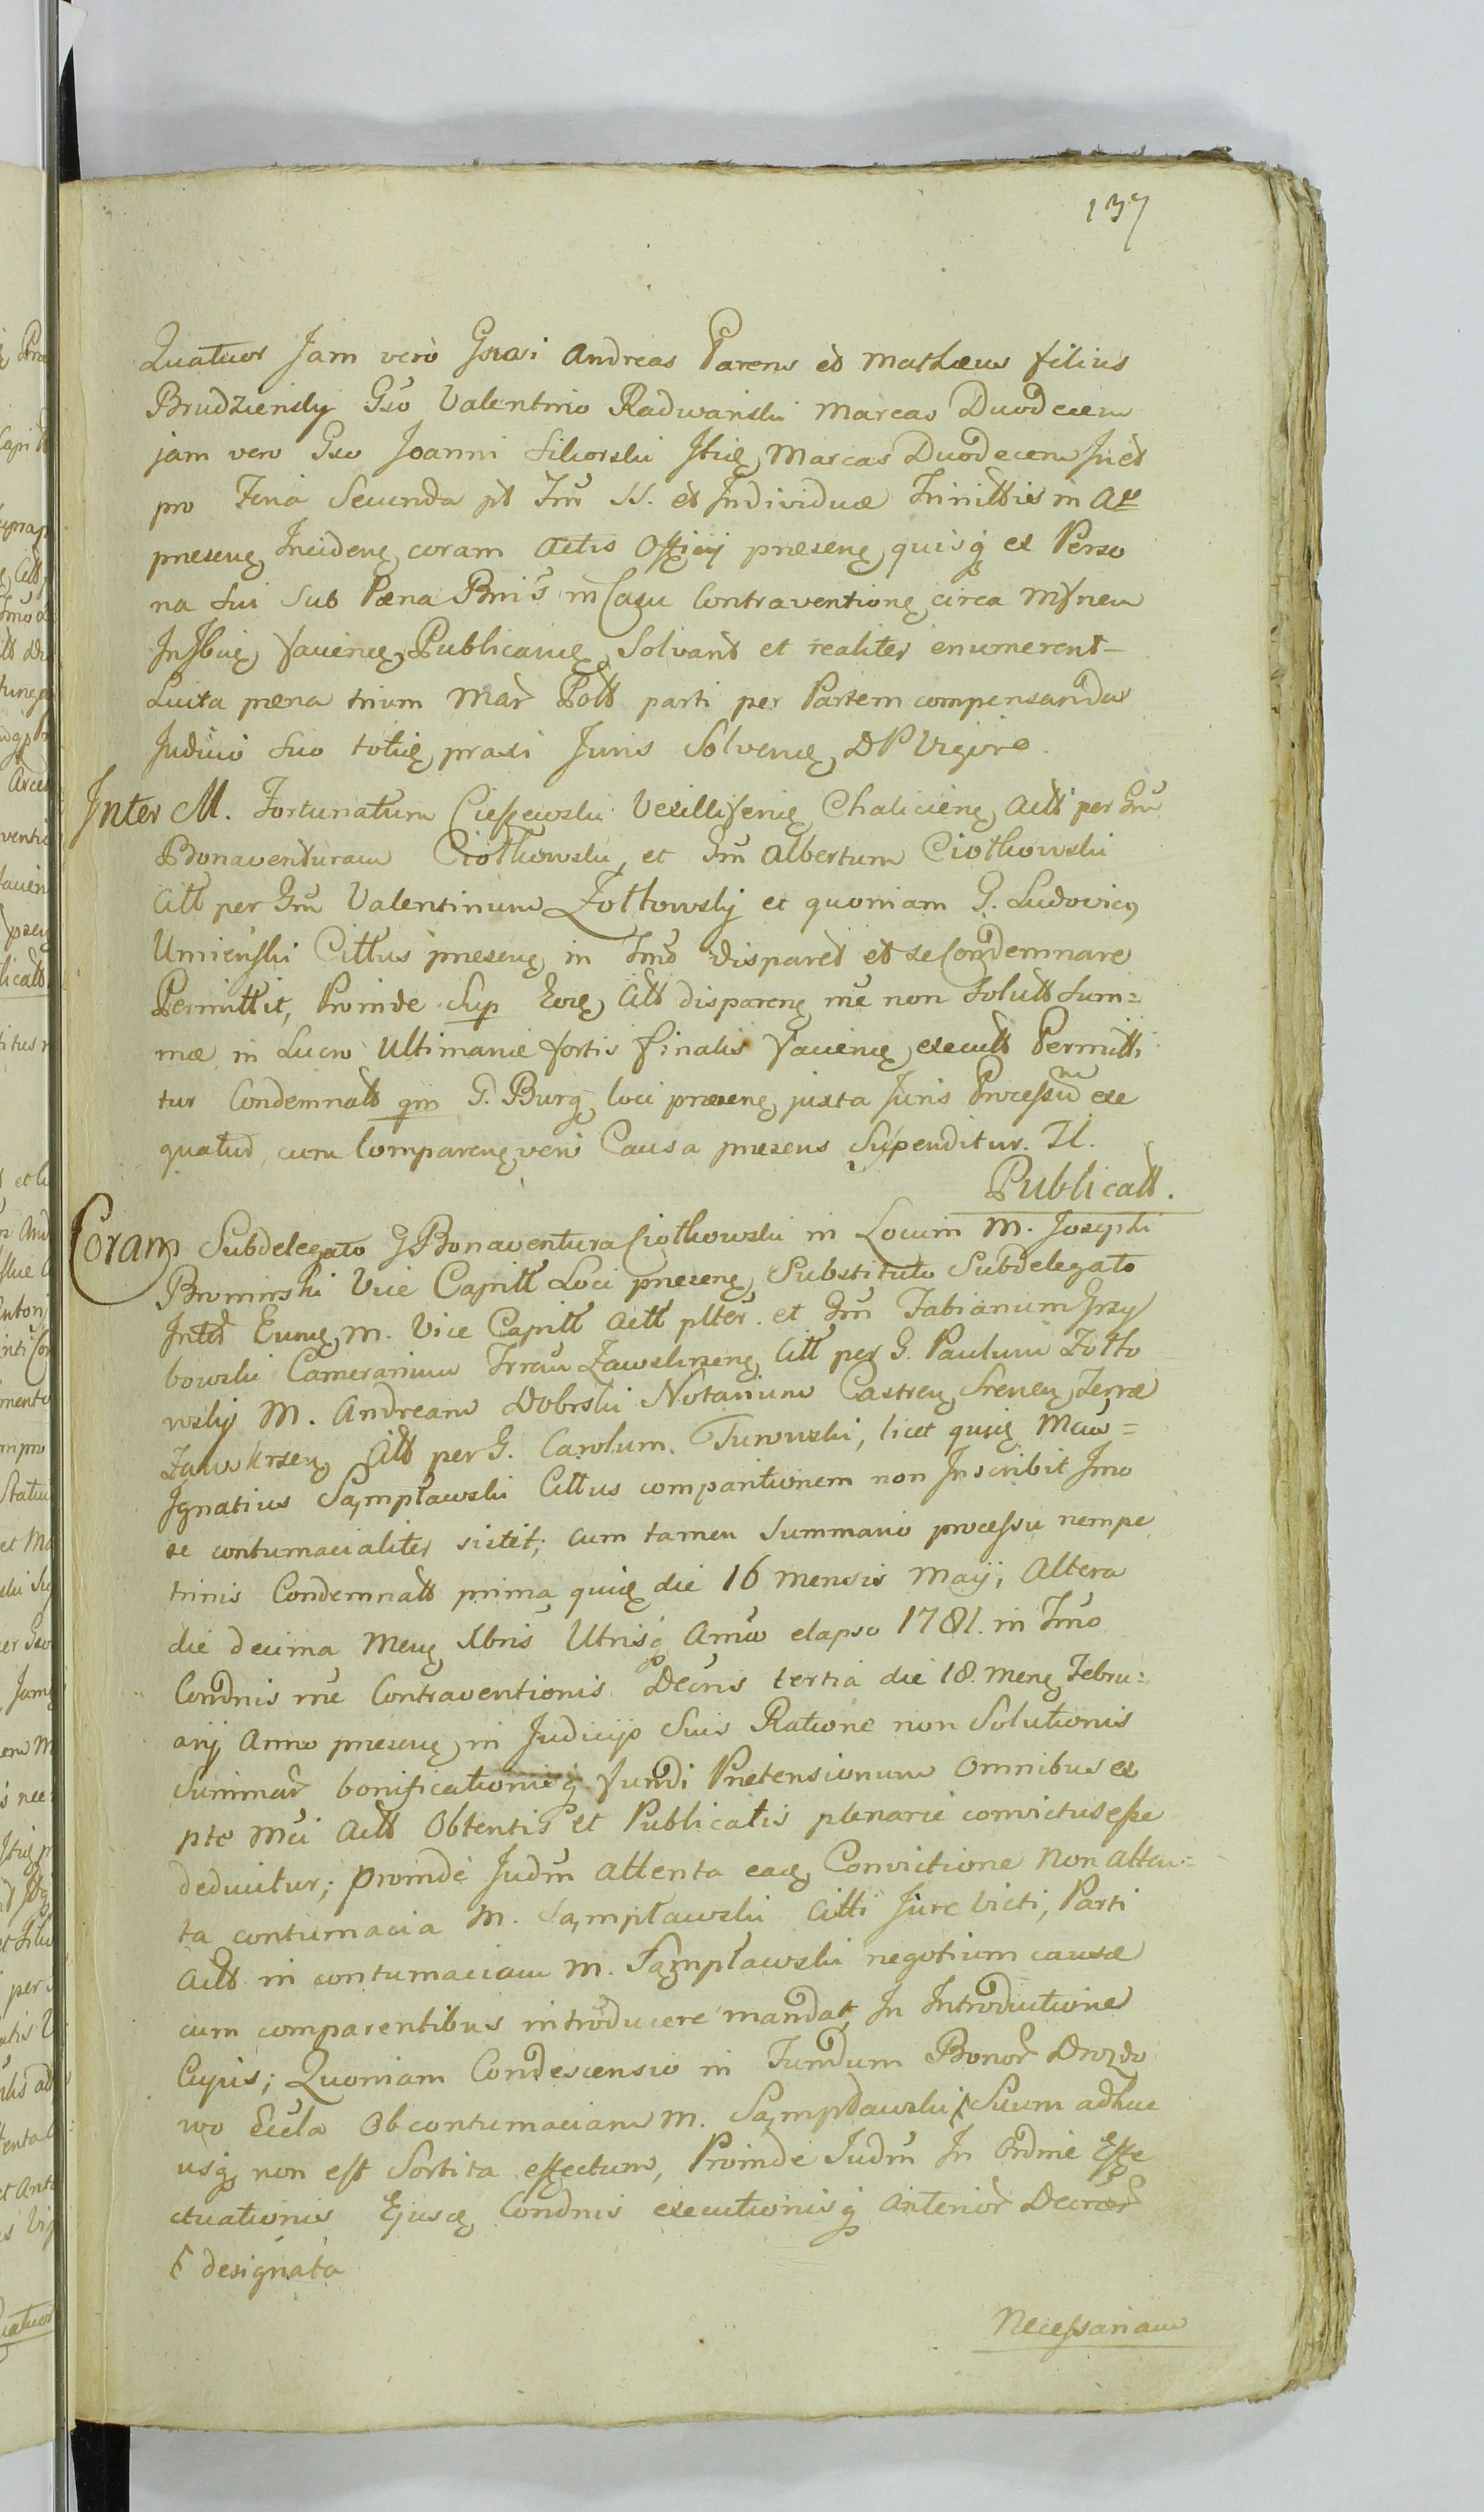 137
Quatuor Jam vero Gnosi Andreas Parens et Mathæus filius
Brudzieńsky Gso Valentino Radwański Marcas Duodecem
jam vero Gso Joanni Sikorski Marcas Duodecem
pro Feria Secunda pt Im SS. et Individuæ Trinittis in
præsenę Incidenę coram Actis Officij præsenę quisq ex Perso
na sui sub Pæna Bnis in Casu Contraventionę circa
favenę Publicanę Solvant et realiter enumerent
Luita pæna trium Mar Poll parti per Partem compensanda
Judicio suo totię praxi Juris Solvenę D P Vigore.
Inter M. Fortunatum Cieszewski Vexilliferię Chalicienę Actt per Gm
Bonaventuram Ciołkowski, et Gm Albertum Ciołkowski
Citt per Gm Valentinum Żołtowsky et quoniam G. Ludovicę
Umieński Cittus præsenę in Tmo disparet et se Condemnare
Permittit, Proinde Sup Eoię Citt disparenę rne non Solutt Sum=
mæ in Lucro Ultimariæ sortis finalis favenę executt Permitti
tur Condemnatt qm G. Burg loci præsenę juxta Juris Processum exe
quatur, cum Comparenę vero Causa præsens Suspenditur.
Publicatt.
Coram Subdelegato G Bonaventura Ciołkowski in Locum M. Josephi
Brominski Vice Capitt Loci præsenę Substituto Subdelegato
Inter Eunę M. Vice Capitt Actt plter. et Gm Fabianum Grzy
bowski Camerarium Trrau Zawskrzenę Citt per G. Paulum Zołto
wsky M. Andream Dobrski Notarium Castrenę Srenenę Terræ
Zawkrzenę Citt per G. Carolum Turowski, licet quię
Ignatius Sampławski Cittus comparitionem non Inscribit Imo
se contumacialiter sistit; cum tamen Summario processu nempe
trinis Condemnatt prima quię die 16 mensis Maij, Altera
die decima Menę Xbris Utrisq Anno elapso 1781. in Tmo
Condnis rne Contraventionis Decris tertia die 18. Menę Febru=
arij Anno præsenę in Judicijs Suis Ratione non Solutionis
Summar bonificationisq fundi Prætensionum Omnibus ex
pte Mci Actt Obtentis et Publicatis plenarie convictus esse
deducitur; proinde Judm attenta eaę Convictione Non atten=
ta contumacia M. Sampławski Citti Jure Victi, Parti
Actt in contumaciam M. Sampławski negotium causæ
cum comparentibus introducere mandat, In Introductione
Cujus; Quoniam Condescensio in Fundum Bonor Drozdo
wo Ob contumaciam M. Sampławski Suum adhuc
usq non est Sortita effectum, Proinde Judm In Ordine Effe
ctuationis Ejusę Condnis executionisq Anterior Decretor
designata
Necessariam